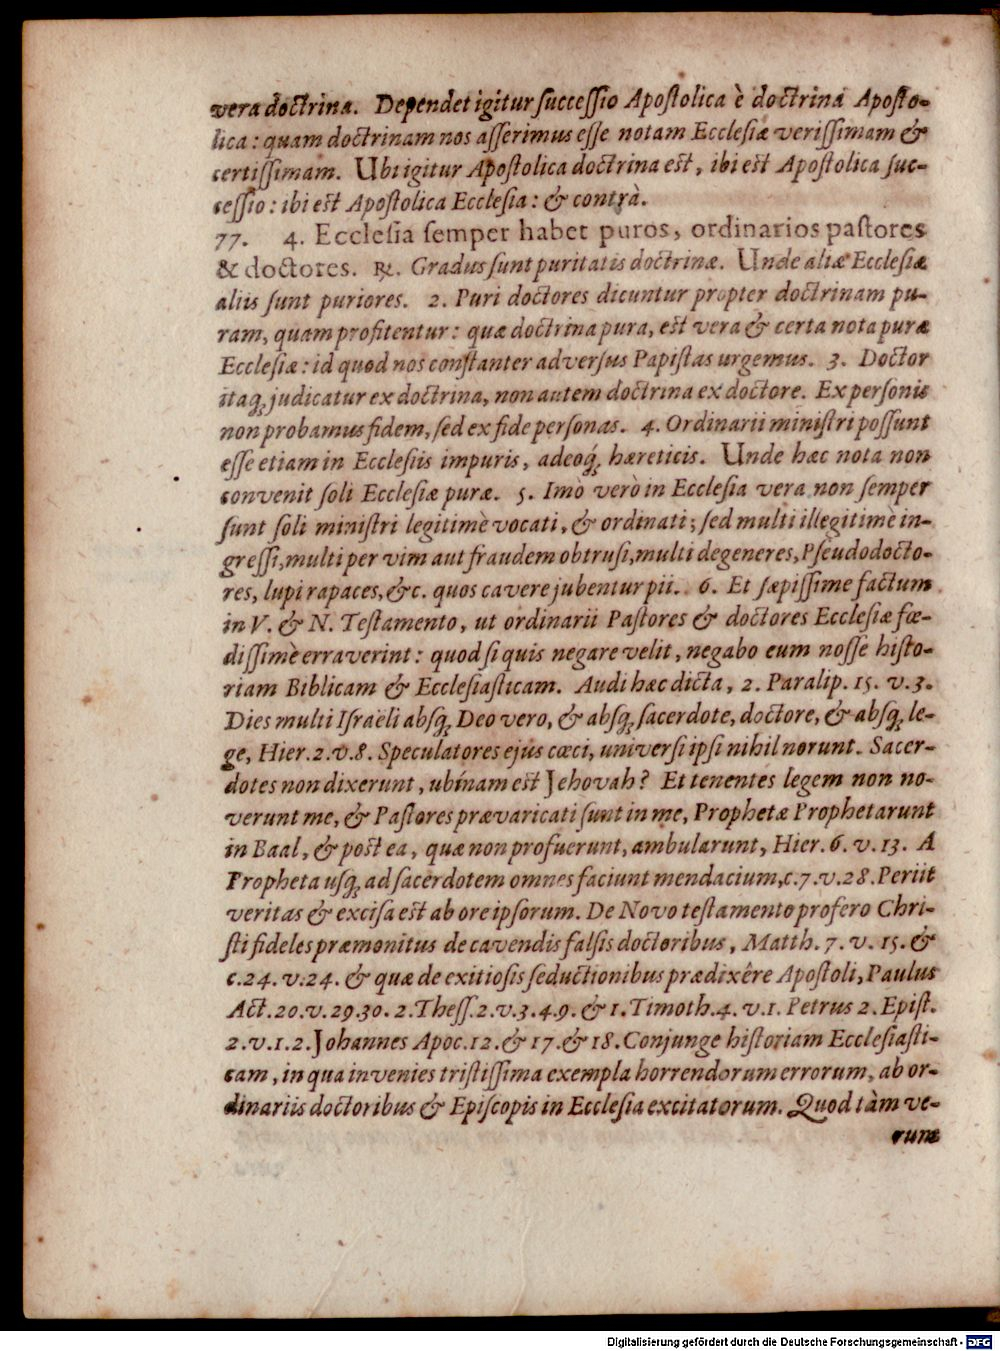 vera doctrina. Dependet igitur ſucceſſio Apoſtolica è doctrina Apoſto-
lica: quam doctrinam nos aſſerimus eſſe notam Eccleſiæ veriſſimam &
certiſſimam. Ubi igitur Apoſtolica doctrina eſt, ibi eſt Apoſtolica ſuc-
ceſſio: ibi eſt Apoſtolica Eccleſia: & contrà.
77. 4. Eccleſia ſemper habet puros, ordinarios paſtores
& doctores. ℞. Gradus ſunt puritatis doctrinæ. Unde aliæ Eccleſiæ
aliis ſunt puriores. 2. Puri doctores dicuntur propter doctrinam pu-
ram, quam profitentur: quæ doctrina pura, eſt vera & certa nota puræ
Eccleſiæ: id quod nos conſtanter adverſus Papiſtas urgemus. 3. Doctor
itaq; judicatur ex doctrina, non autem doctrina ex doctore. Ex perſonis
non probamus fidem, ſed ex fide perſonas. 4. Ordinarii miniſtri poſſunt
eſſe etiam in Eccleſiis impuris, adeoq́; hæreticis. Unde hæc nota non
convenit ſoli Eccleſiæ puræ. 5. Imò verò in Eccleſia vera non ſemper
ſunt ſoli miniſtri legitimè vocati, & ordinati; ſed multi illegitimè in-
greſſi, multi per vim aut fraudem obtruſi, multi degeneres, Pſeudodocto-
res, lupi rapaces, &c. quos cavere jubentur pii. 6. Et ſæpiſſime factum
in V. & N. Teſtamento, ut ordinarii Paſtores & doctores Eccleſiæ fœ-
diſſimè erraverint: quod ſi quis negare velit, negabo eum noſſe hiſto-
riam Biblicam & Eccleſiaſticam. Audi hæc dicta, 2. Paralip. 15. v. 3.
Dies multi Iſraëli abſq; Deo vero, & abſq; ſacerdote, doctore, & abſq; le-
ge, Hier. 2. v. 8. Speculatores ejus cœci, univerſi ipſi nihil norunt. Sacer-
dotes non dixerunt, ubínam eſt Jehovah? Et tenentes legem non no-
verunt me, & Paſtores prævaricati ſunt in me, Prophetæ Prophetarunt
in Baal, & poſt ea, quæ non profuerunt, ambularunt, Hier. 6. v. 13. A
Propheta uſq; ad ſacerdotem omnes faciunt mendacium, c. 7. v. 28. Periit
veritas & exciſa eſt ab ore ipſorum. De Novo teſtamento profero Chri-
ſti fideles præmonitus de cavendis falſis doctoribus, Matth. 7. v. 15. &
c. 24. v. 24. & quæ de exitioſis ſeductionibus prædixêre Apoſtoli, Paulus
Act. 20. v. 29. 30. 2. Theſſ. 2. v. 3. 4. 9. & 1. Timoth. 4. v. 1. Petrus 2. Epiſt.
2. v. 1. 2. Johannes Apoc. 12. & 17. & 18. Conjunge hiſtoriam Eccleſiaſti-
cam, in qua invenies triſtiſſima exempla horrendorum errorum, ab or-
dinariis doctoribus & Epiſcopis in Eccleſia excitatorum. Quod tàm ve-
rum
Digitalisierung gefördert durch die Deutsche Forschungsgemeinschaft - DFG